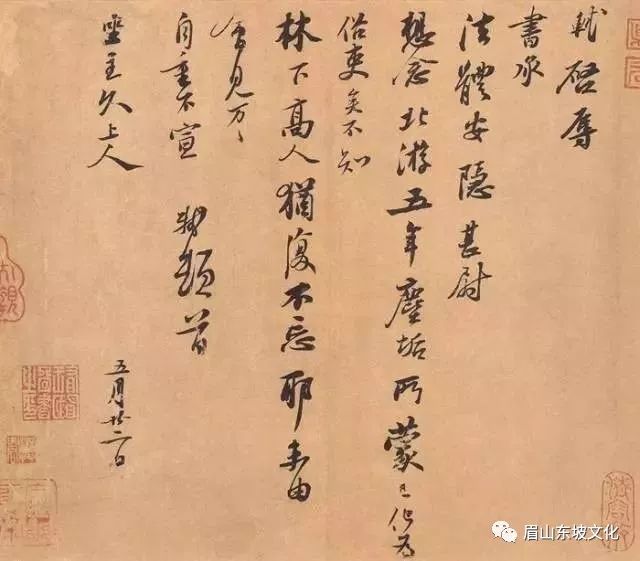 軾啓辱
書承
法體安隱甚尉
想念北游五年塵垢所蒙已化爲
俗吏矣不知
林下高人猶復不忘耶未由
會見萬萬
自重不宣 軾頓首
坐主久上人
五月廿二日
眉山东坡文化